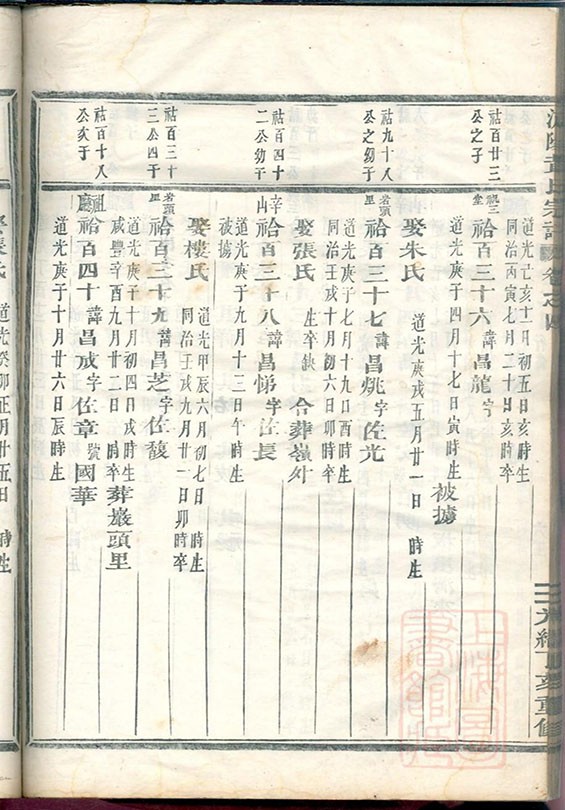 宗譜 卷之四
三 光緒丁亥重修
道光己亥十一月初五日亥時生
同治丙寅七月二十日亥時卒
祜百廿三
公之子
三
堂
祫百三十六 諱昌龍 字
道光庚子四月十七日寅時生 被擄
娶朱氏 道光庚戌五月廿一日 時生
祜九十八
公之幼子
岩頭
里
祫百三十七 諱昌姚 字佐光
道光庚子七月十九日酉時生
同治壬戌十月初六日卯時卒
娶張氏 生卒缺 合葬嶺外
祜百四十
二公幼子
辛
山
祫百三十八 諱昌悌 字佐長
道光庚子九月十三日午時生
被擄
娶樓氏 道光甲辰六月初七日 時生
同治壬戌九月廿一日卯時卒
祜百三十
三公四子
岩頭
里
祫百三十九 諱昌芝 字佐馥
道光庚子十月初四日戌時生
咸豐辛酉九月廿二日 時卒 葬巖頭里
祜百十八
公次子
祫百四十 諱昌成 字佐章 號國華
道光庚子十月廿六日辰時生
娶張氏 道光癸卯正月廿五日 時生
上海圖書館藏